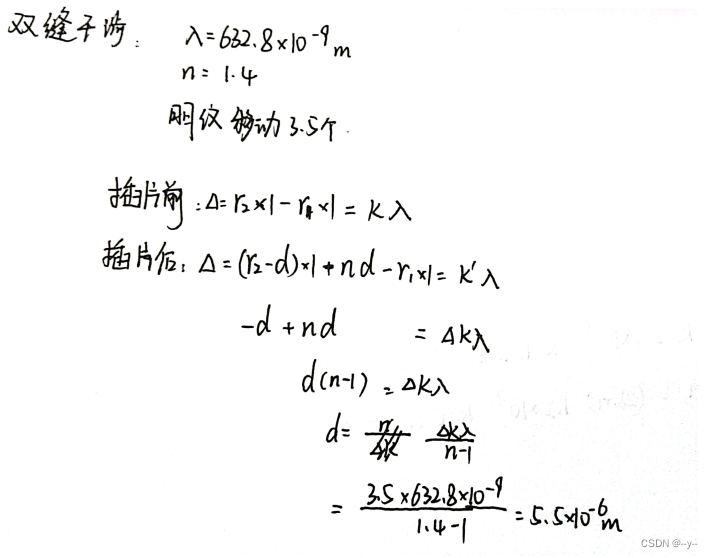 双缝干涉： λ=632.8×10⁻⁹m
n=1.4
明纹移动3.5个.
插片前：Δ=r₂×1-r₁×1=kλ
插片后：Δ=(r₂-d)×1+nd-r₁×1=k'λ
-d+nd =Δkλ
d(n-1)=Δkλ
d= Δkλ/(n-1)
= 3.5×632.8×10⁻⁹/(1.4-1) =5.5×10⁻⁶m
CSDN @--y--